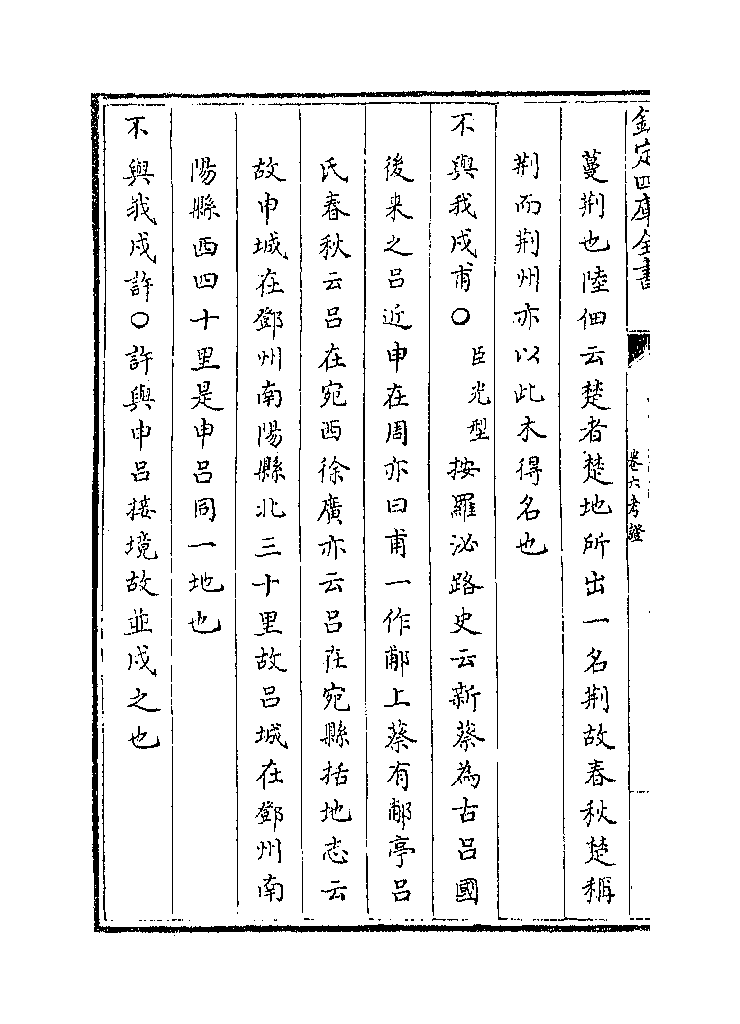 欽定四庫全書
卷六考證
蔓荆也陸佃云楚者楚地所出一名荆故春秋楚稱
荆而荆州亦以此木得名也
不與我戍甫○臣光型按羅泌路史云新蔡為古吕國
後来之吕近申在周亦曰甫一作鄘上蔡有鄘亭吕
氏春秋云吕在宛西徐廣亦云吕在宛縣括地志云
故申城在鄧州南陽縣北三十里故吕城在鄧州南
陽縣西四十里是申吕同一地也
不與我戍許○許與申吕接境故並戍之也